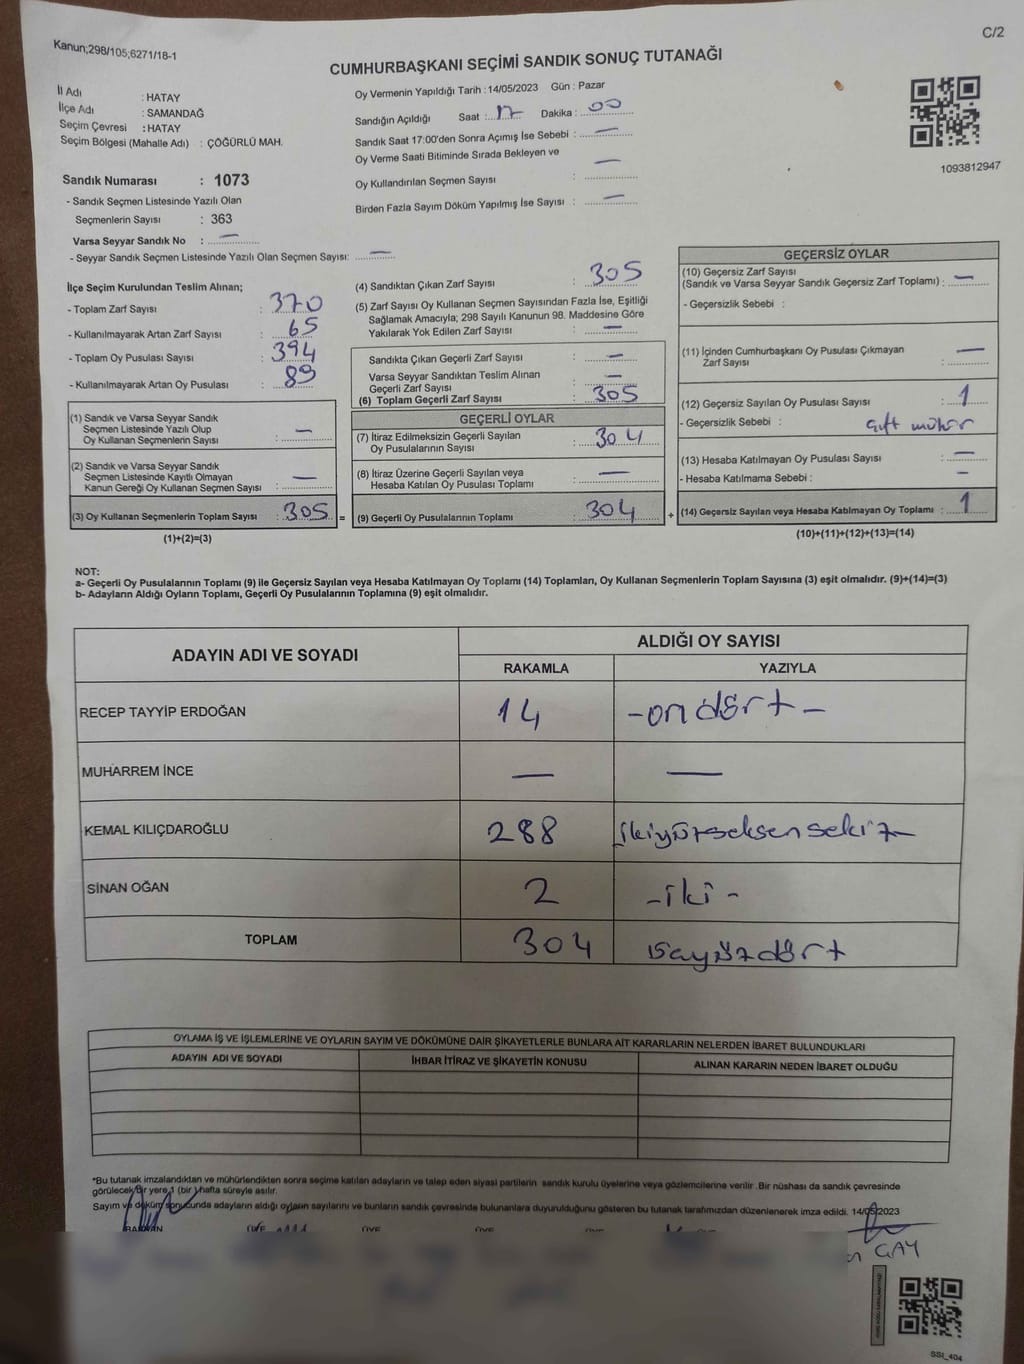 Kanun;298/105;6271/18-1
C/2
CUMHURBAŞKANI SEÇİMİ SANDIK SONUÇ TUTANAĞI
İl Adı : HATAY
İlçe Adı : SAMANDAĞ
Seçim Çevresi : HATAY
Seçim Bölgesi (Mahalle Adı) : ÇÖĞÜRLÜ MAH.
Sandık Numarası : 1073
- Sandık Seçmen Listesinde Yazılı Olan
Seçmenlerin Sayısı : 363
Varsa Seyyar Sandık No : —
- Seyyar Sandık Seçmen Listesinde Yazılı Olan Seçmen Sayısı: —
Oy Vermenin Yapıldığı Tarih : 14/05/2023 Gün : Pazar
Sandığın Açıldığı Saat : 17 Dakika : 00
Sandık Saat 17:00'den Sonra Açımış İse Sebebi : —
Oy Verme Saati Bitiminde Sırada Bekleyen ve
Oy Kullandırılan Seçmen Sayısı : —
Birden Fazla Sayım Döküm Yapılmış İse Sayısı : —
1093812947
İlçe Seçim Kurulundan Teslim Alınan;
- Toplam Zarf Sayısı : 370
- Kullanılmayarak Artan Zarf Sayısı : 65
- Toplam Oy Pusulası Sayısı : 394
- Kullanılmayarak Artan Oy Pusulası : 89
(1) Sandık ve Varsa Seyyar Sandık
Seçmen Listesinde Yazılı Olup
Oy Kullanan Seçmenlerin Sayısı : —
(2) Sandık ve Varsa Seyyar Sandık
Seçmen Listesinde Kayıtlı Olmayan
Kanun Gereği Oy Kullanan Seçmen Sayısı : —
(3) Oy Kullanan Seçmenlerin Toplam Sayısı : 305 =
(1)+(2)=(3)
(4) Sandıktan Çıkan Zarf Sayısı : 305
(5) Zarf Sayısı Oy Kullanan Seçmen Sayısından Fazla İse, Eşitliği
Sağlamak Amacıyla; 298 Sayılı Kanunun 98. Maddesine Göre
Yakılarak Yok Edilen Zarf Sayısı : —
Sandıkta Çıkan Geçerli Zarf Sayısı : —
Varsa Seyyar Sandıktan Teslim Alınan
Geçerli Zarf Sayısı : —
(6) Toplam Geçerli Zarf Sayısı : 305
GEÇERLİ OYLAR
(7) İtiraz Edilmeksizin Geçerli Sayılan
Oy Pusulalarının Sayısı : 304
(8) İtiraz Üzerine Geçerli Sayılan veya
Hesaba Katılan Oy Pusulası Toplamı : —
(9) Geçerli Oy Pusulalarının Toplamı : 304 +
GEÇERSİZ OYLAR
(10) Geçersiz Zarf Sayısı
(Sandık ve Varsa Seyyar Sandık Geçersiz Zarf Toplamı) : —
- Geçersizlik Sebebi :
(11) İçinden Cumhurbaşkanı Oy Pusulası Çıkmayan
Zarf Sayısı : —
(12) Geçersiz Sayılan Oy Pusulası Sayısı : 1
- Geçersizlik Sebebi : çift mühür
(13) Hesaba Katılmayan Oy Pusulası Sayısı : —
- Hesaba Katılmama Sebebi : —
(14) Geçersiz Sayılan veya Hesaba Katılmayan Oy Toplamı : 1
(10)+(11)+(12)+(13)=(14)
NOT:
a- Geçerli Oy Pusulalarının Toplamı (9) ile Geçersiz Sayılan veya Hesaba Katılmayan Oy Toplamı (14) Toplamları, Oy Kullanan Seçmenlerin Toplam Sayısına (3) eşit olmalıdır. (9)+(14)=(3)
b- Adayların Aldığı Oyların Toplamı, Geçerli Oy Pusulalarının Toplamına (9) eşit olmalıdır.
ADAYIN ADI VE SOYADI ALDIĞI OY SAYISI
RAKAMLA YAZIYLA
RECEP TAYYİP ERDOĞAN 14 -on dört-
MUHARREM İNCE — —
KEMAL KILIÇDAROĞLU 288 ikiyüzseksensekiz
SİNAN OĞAN 2 -iki-
TOPLAM 304 üçyüzdört
OYLAMA İŞ VE İŞLEMLERİNE VE OYLARIN SAYIM VE DÖKÜMÜNE DAİR ŞİKAYETLERLE BUNLARA AİT KARARLARIN NELERDEN İBARET BULUNDUKLARI
ADAYIN ADI VE SOYADI İHBAR İTİRAZ VE ŞİKAYETİN KONUSU ALINAN KARARIN NEDEN İBARET OLDUĞU
*Bu tutanak imzalandıktan ve mühürlendikten sonra seçime katılan adayların ve talep eden siyasi partilerin sandık kurulu üyelerine veya gözlemcilerine verilir .Bir nüshası da sandık çevresinde
görülecek bir yere 1 (bir ) hafta süreyle asılır.
Sayım ve döküm sonucunda adayların aldığı oyların sayılarını ve bunların sandık çevresinde bulunanlara duyurulduğunu gösteren bu tutanak tarafımızdan düzenlenerek imza edildi. 14/05/2023
BAŞKAN ÜYE ÜYE ÜYE ÜYE
GAY
SSI_404